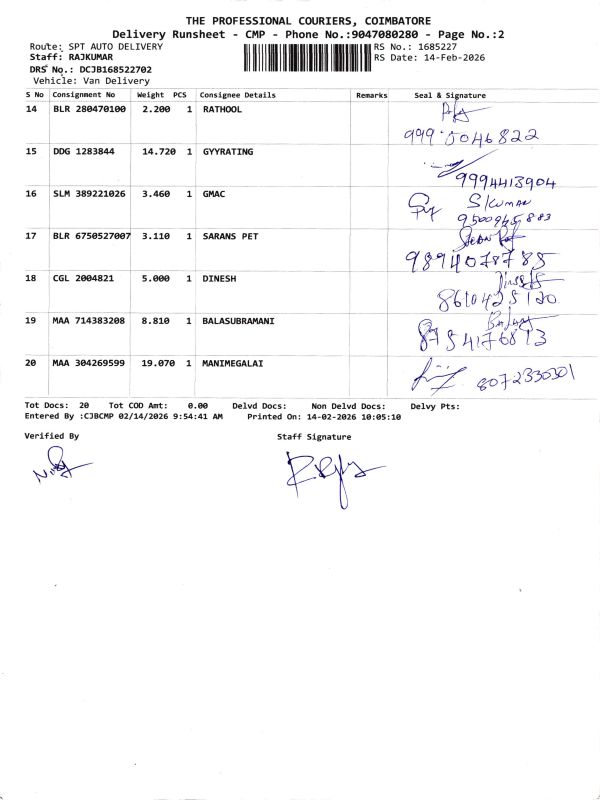 THE PROFESSIONAL COURIERS, COIMBATORE
Delivery Runsheet - CMP - Phone No.:9047080280 - Page No.:2
Route: SPT AUTO DELIVERY
RS No.: 1685227
Staff: RAJKUMAR
RS Date: 14-Feb-2026
DRS No.: DCJB168522702
Vehicle: Van Delivery
S No Consignment No Weight PCS Consignee Details Remarks Seal & Signature
14 BLR 280470100 2.200 1 RATHOOL
15 DDG 1283844 14.720 1 GYYRATING
9994413904
16 SLM 389221026 3.460 1 GMAC
S/KUMAR
9500945883
17 BLR 6750527007 3.110 1 SARANS PET
9894078785
18 CGL 2004821 5.000 1 DINESH
8610425120
19 MAA 714383208 8.810 1 BALASUBRAMANI
8754176813
20 MAA 304269599 19.070 1 MANIMEGALAI
8072330301
Tot Docs: 20 Tot COD Amt: 0.00 Delvd Docs: Non Delvd Docs: Delvy Pts:
Entered By :CJBCMP 02/14/2026 9:54:41 AM Printed On: 14-02-2026 10:05:10
Verified By Staff Signature